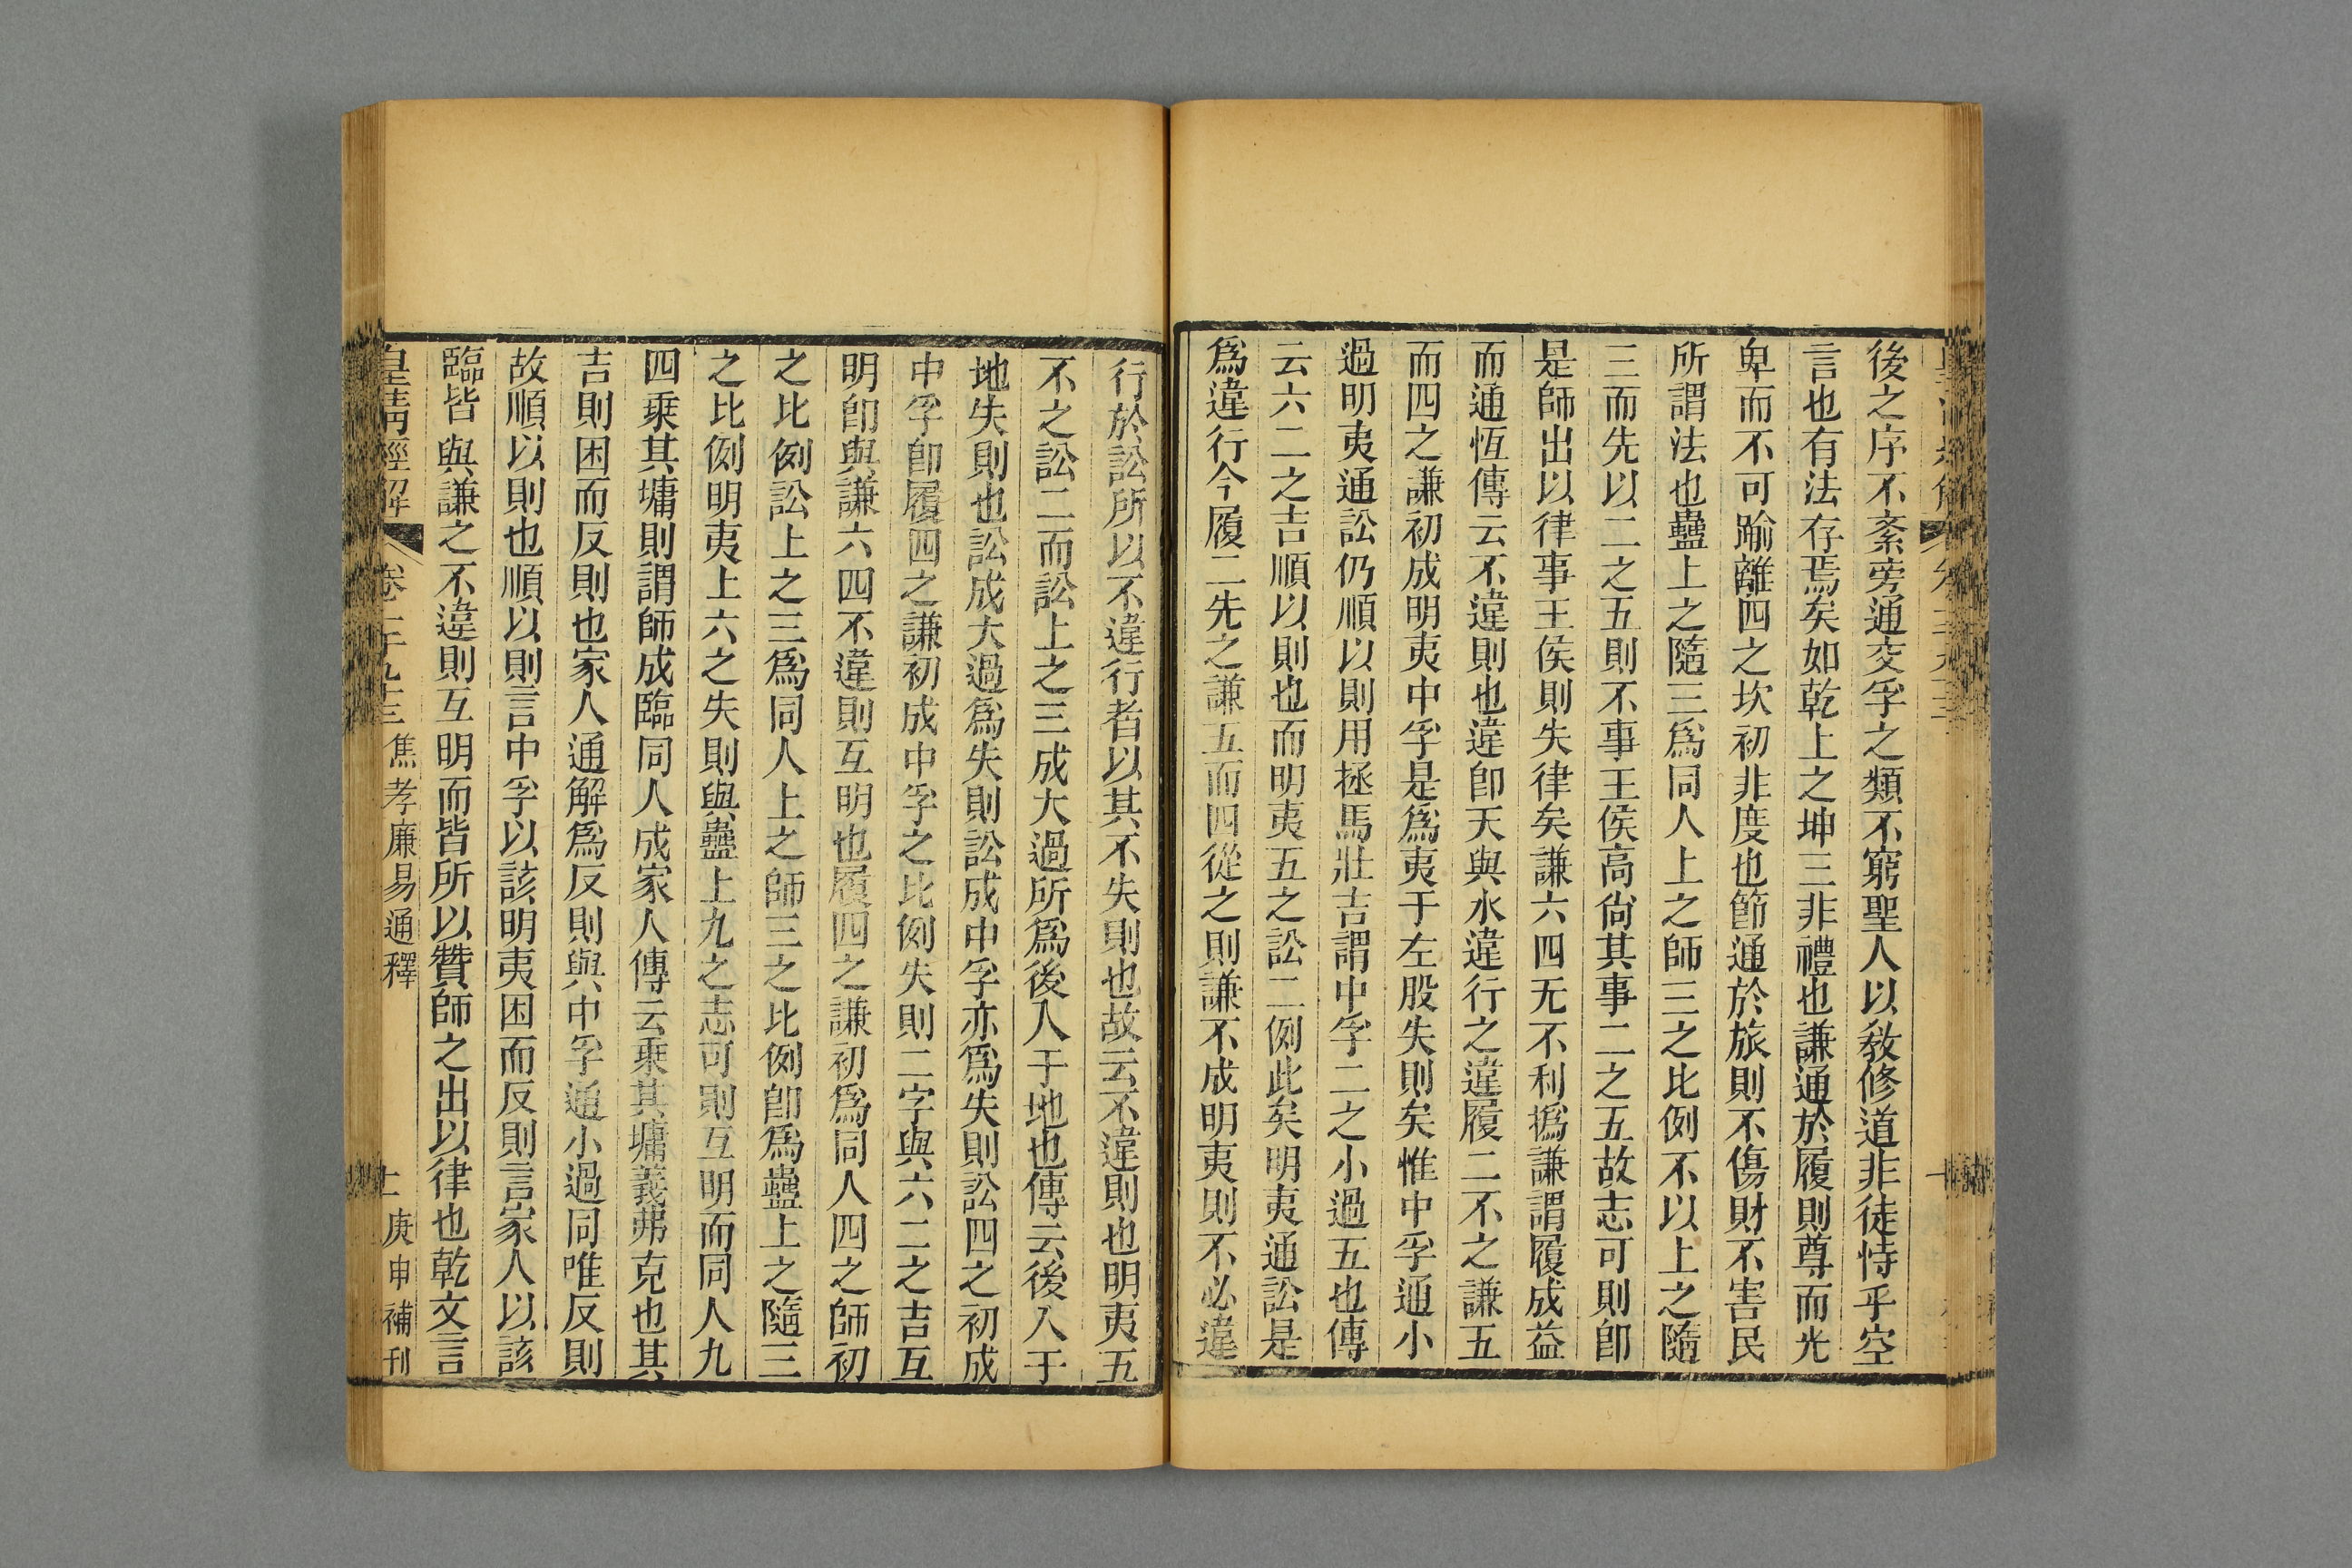 後之序不紊旁通交孚之類不窮聖人以敎修道非徒恃乎空
言也有法存焉矣如乾上之坤三非禮也謙通於履則尊而光
卑而不可踰離四之坎初非度也節通於旅則不傷財不害民
所謂法也蠱上之隨三爲同人上之師三之比例不以上之隨
三而先以二之五則不事王侯高尙其事二之五故志可則卽
是師出以律事王侯則失律矣謙六四无不利撝謙謂履成益
而通恆傳云不違則也違卽天與水違行之違履二不之謙五
而四之謙初成明夷中孚是爲夷于左股失則矣惟中孚通小
過明夷通訟仍順以則用拯馬壯吉謂中孚二之小過五也傳
云六二之吉順以則也而明夷五之訟二例此矣明夷通訟是
爲違行今履二先之謙五而四從之則謙不成明夷則不必違
行於訟所以不違行者以其不失則也故云不違則也明夷五
不之訟二而訟上之三成大過所爲後入于地也傳云後入于
地失則也訟成大過爲失則訟成中孚亦爲失則訟四之初成
中孚卽履四之謙初成中孚之比例失則二字與六二之吉互
明卽與謙六四不違則互明也履四之謙初爲同人四之師初
之比例訟上之三爲同人上之師三之比例卽爲蠱上之隨三
之比例明夷上六之失則與蠱上九之志可則互明而同人九
四乘其墉則謂師成臨同人成家人傳云乘其墉義弗克也其
吉則困而反則也家人通解爲反則與中孚通小過同唯反則
故順以則也順以則言中孚以該明夷困而反則言家人以該
臨皆與謙之不違則互明而皆所以贊師之出以律也乾文言
皇淸經解 卷千九十三 焦孝廉易通釋 庚申補刊